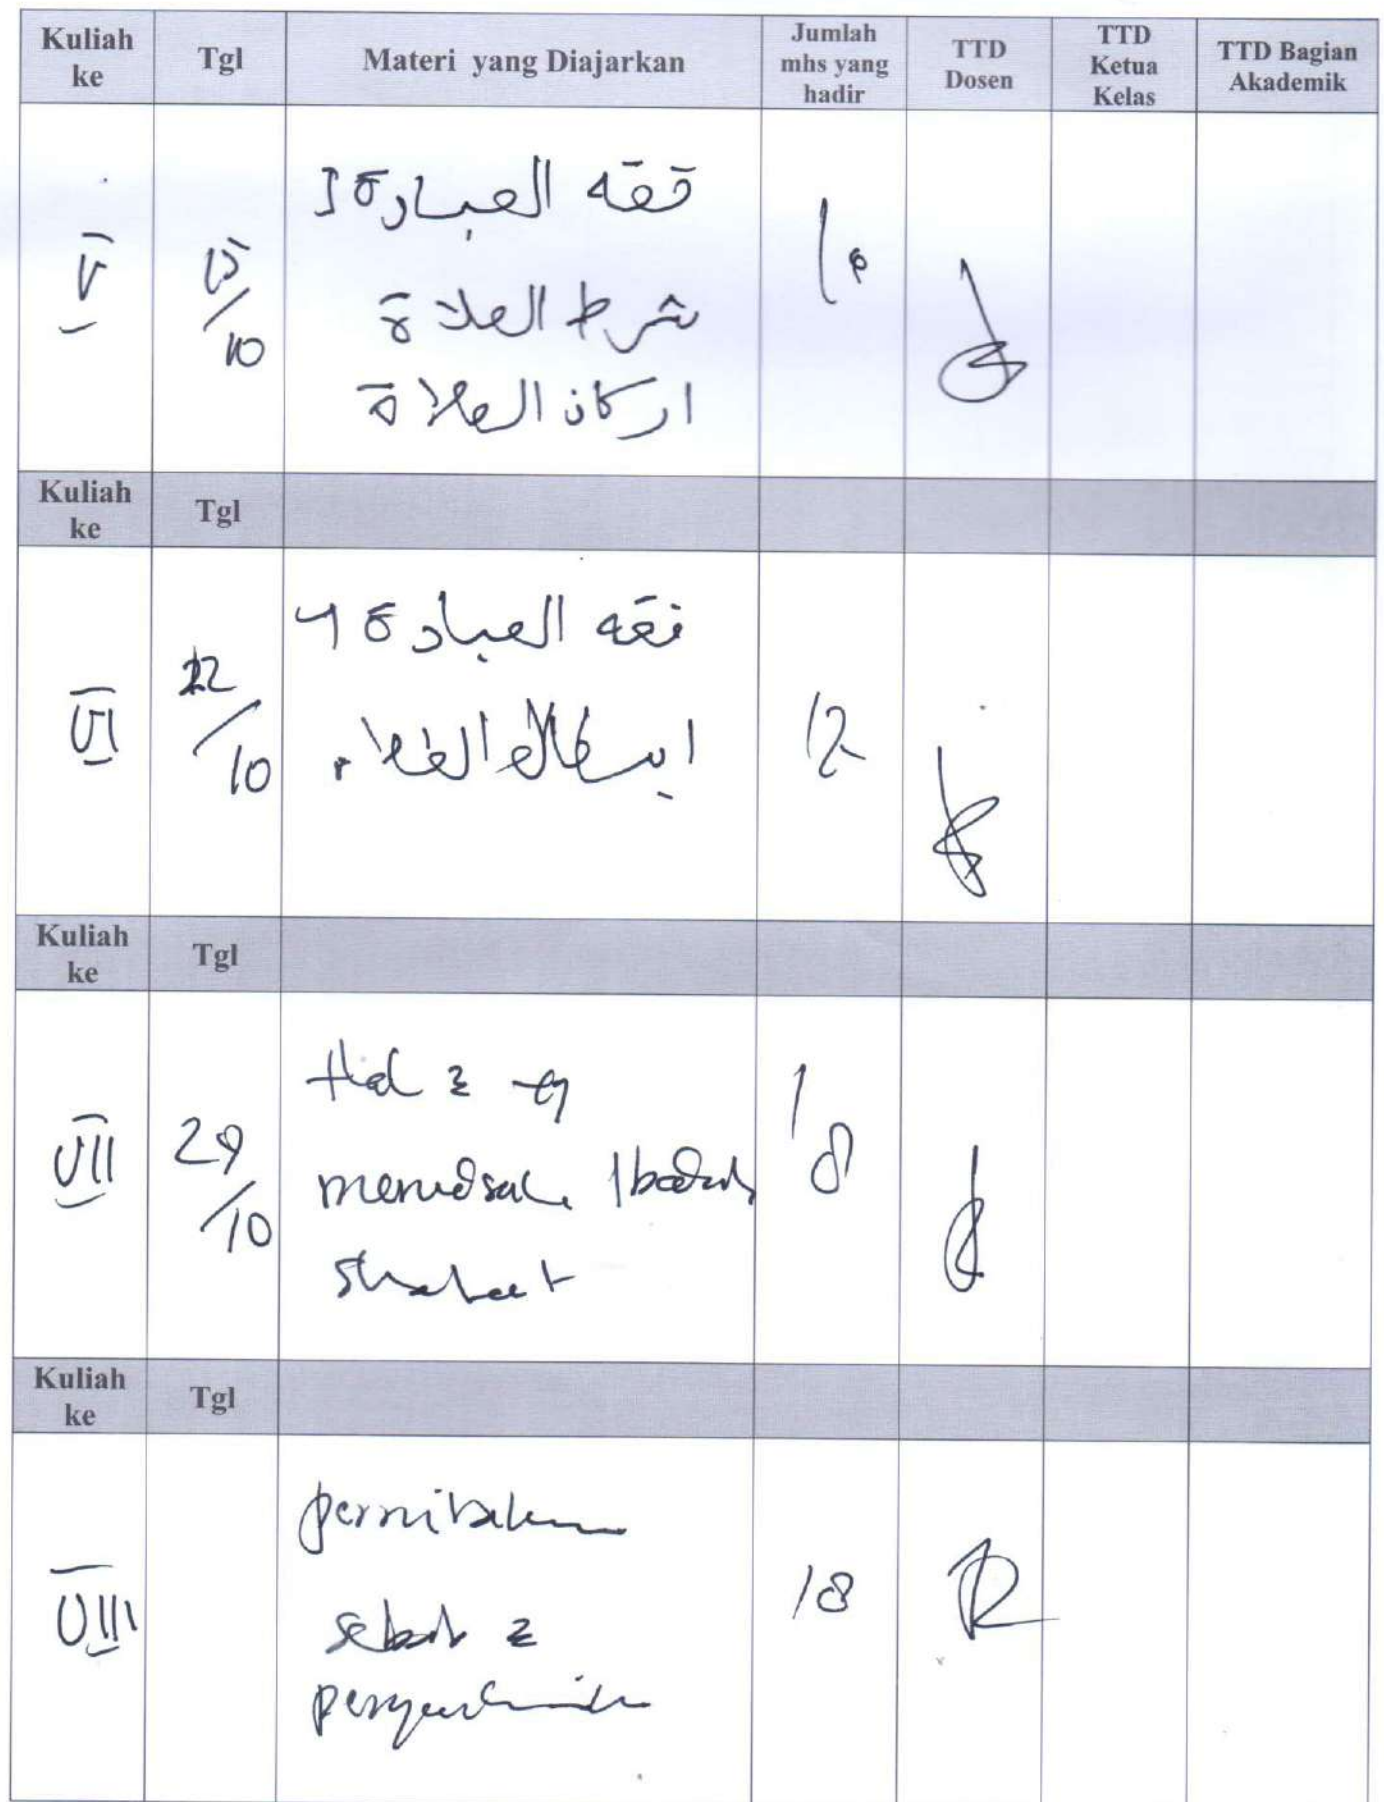 Kuliah ke
Tgl
Materi yang Diajarkan
Jumlah mhs yang hadir
TTD Dosen
TTD Ketua Kelas
TTD Bagian Akademik
V
15/10
فقه العبادة
شرط الصلاة
اركان الصلاة
Kuliah ke
Tgl
VI
22/10
فقه العبادة
12
Kuliah ke
Tgl
VII
29/10
Hal 2 yg
merusak Ibadah
shalat
18
Kuliah ke
Tgl
VIII
pernikahan
sebab 2
18